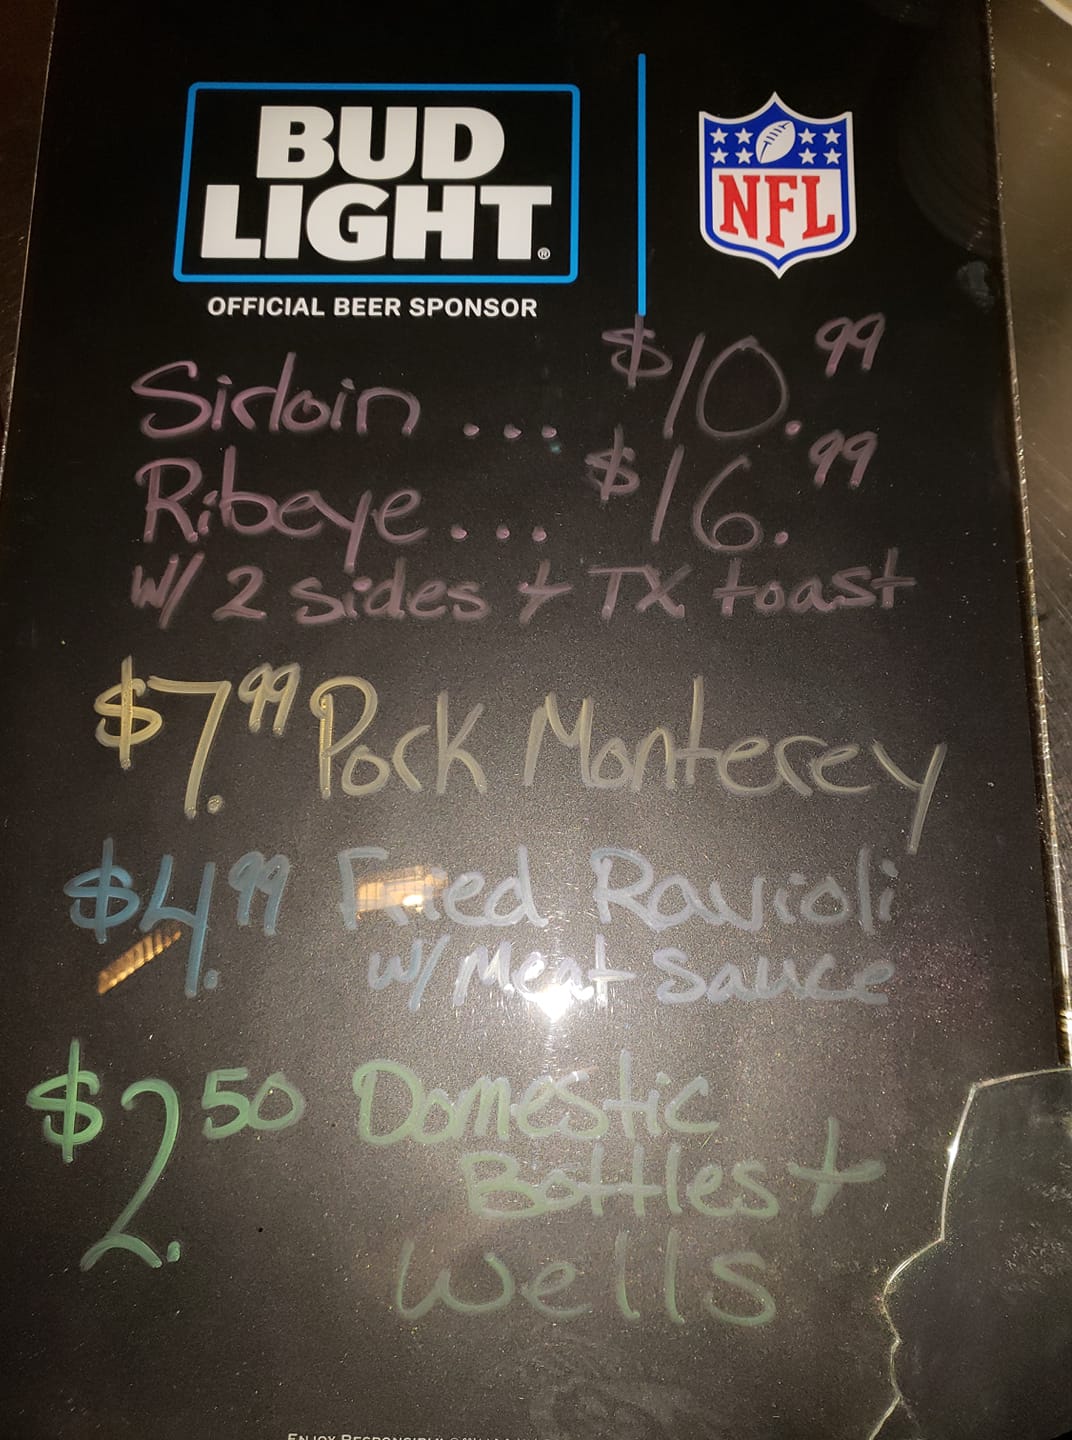 BUD
LIGHT®
OFFICIAL BEER SPONSOR
NFL
Sirloin ... $10.99
Ribeye ... $16.99
w/ 2 sides + TX toast
$7.99 Pork Monterey
$4.99 Fried Ravioli
w/ Meat Sauce
$2.50 Domestic
Bottles +
Wells
ENJOY RESPONSIBLY